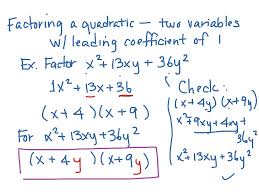 Factoring a quadratic — two variables
w/ leading coefficient of 1
Ex. Factor x² + 13xy + 36y²
1x² + 13x + 36
(x + 4)(x + 9)
For x² + 13xy + 36y²
(x + 4y)(x + 9y)
Check:
(x + 4y)(x + 9y)
x² + 9xy + 4xy +
36y²
x² + 13xy + 36y²
✓